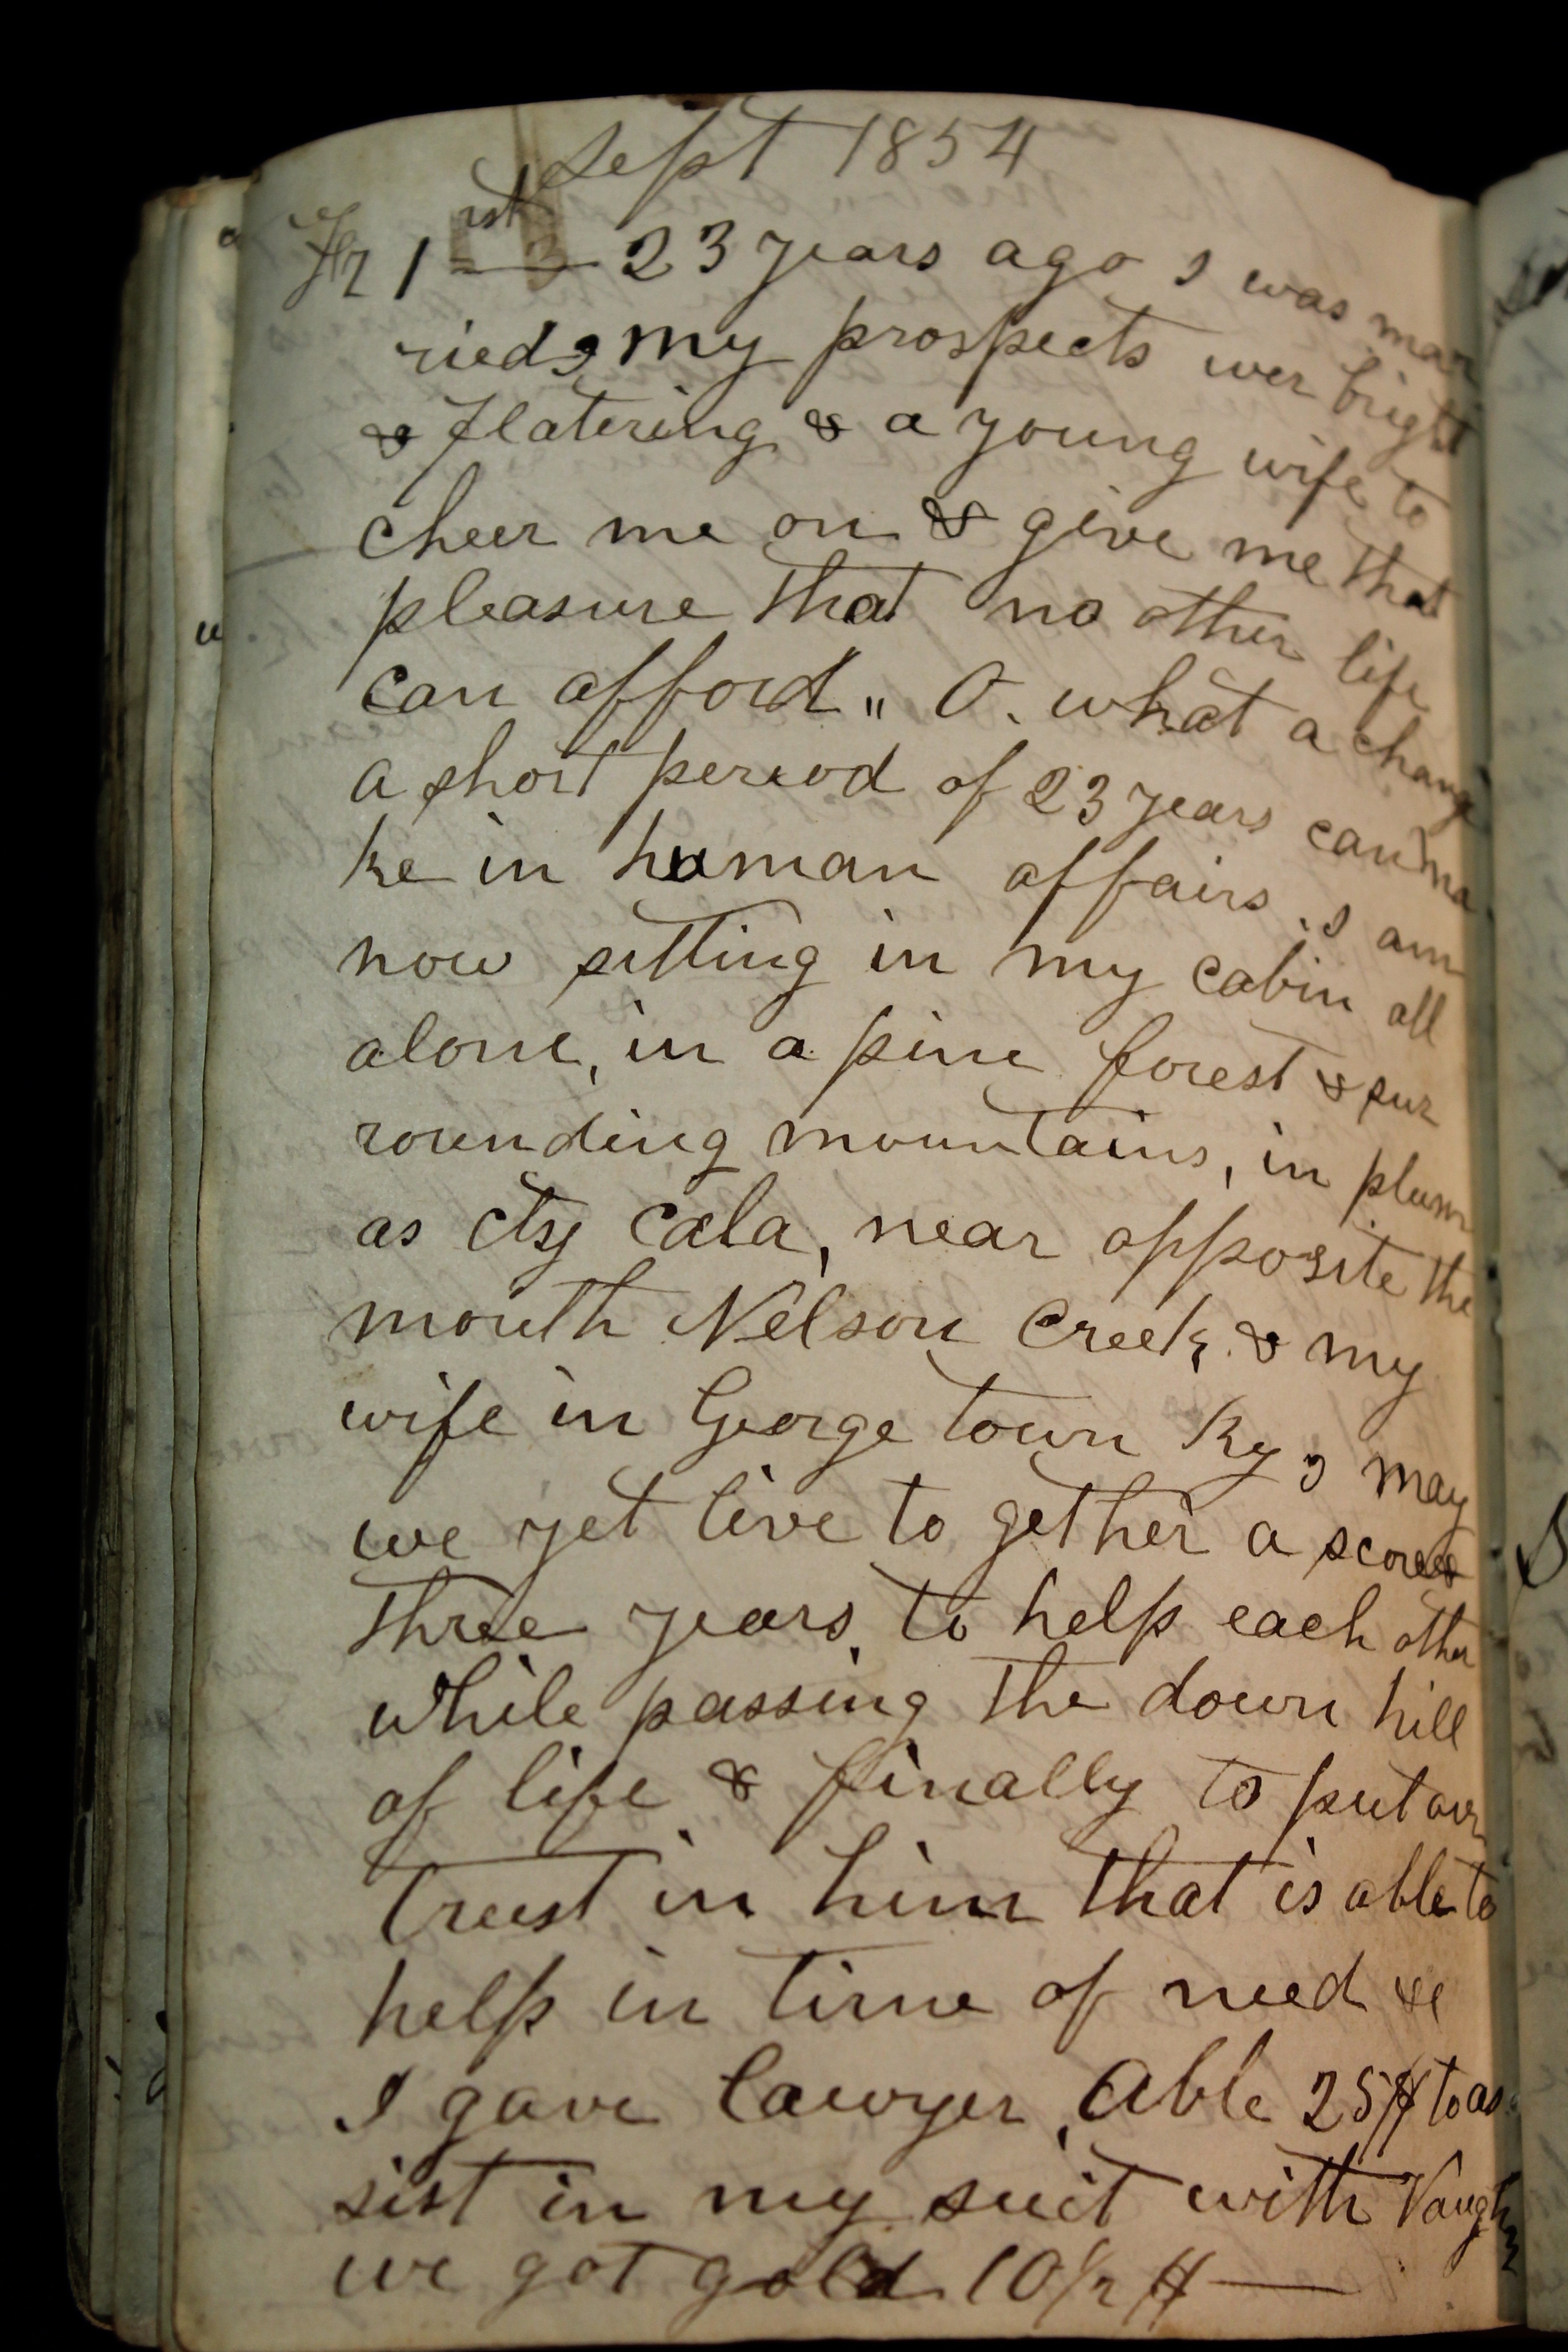 Sept 1854
Fr 1st 23 years ago I was mar
ried, my prospects wer bright
& flatering & a young wife to
cheer me on & give me that
pleasure that no other life
can afford " O. what a change
a short period of 23 years can ma
ke in human affairs. I am
now sitting in my cabin all
alone, in a pine forest & sur
rounding mountains, in plum
as cty Cala, near opposite the
mouth Nelson Creek. & my
wife in George town Ky, may
we yet live to gether a score &
three years, to help each other
while passing the down hill
of life & finally to put our
trust in him that is able to
help in time of need &c
I gave lawyer Able 25 $ to as
sist in my suit with Vaughn
we got gold 10 1/2 $ —